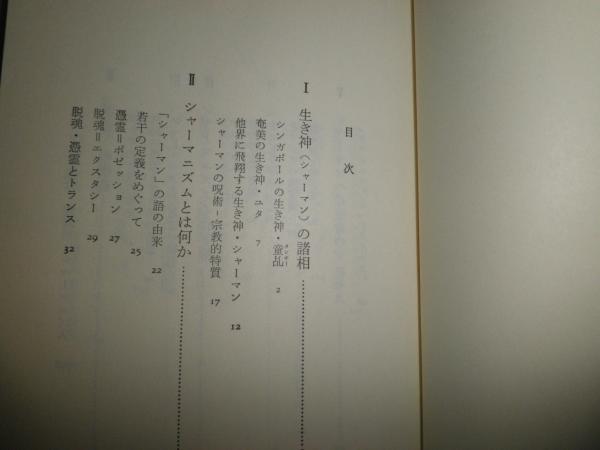 目次
I 生き神（シャーマン）の諸相
シンガポールの生き神・童乩 2
タンキー
奄美の生き神・ユタ 7
他界に飛翔する生き神・シャーマン 12
シャーマンの呪術－宗教的特質 17
II シャーマニズムとは何か
「シャーマン」の語の由来 22
若干の定義をめぐって 25
憑霊＝ポゼッション 27
脱魂＝エクスタシー 29
脱魂・憑霊とトランス 32